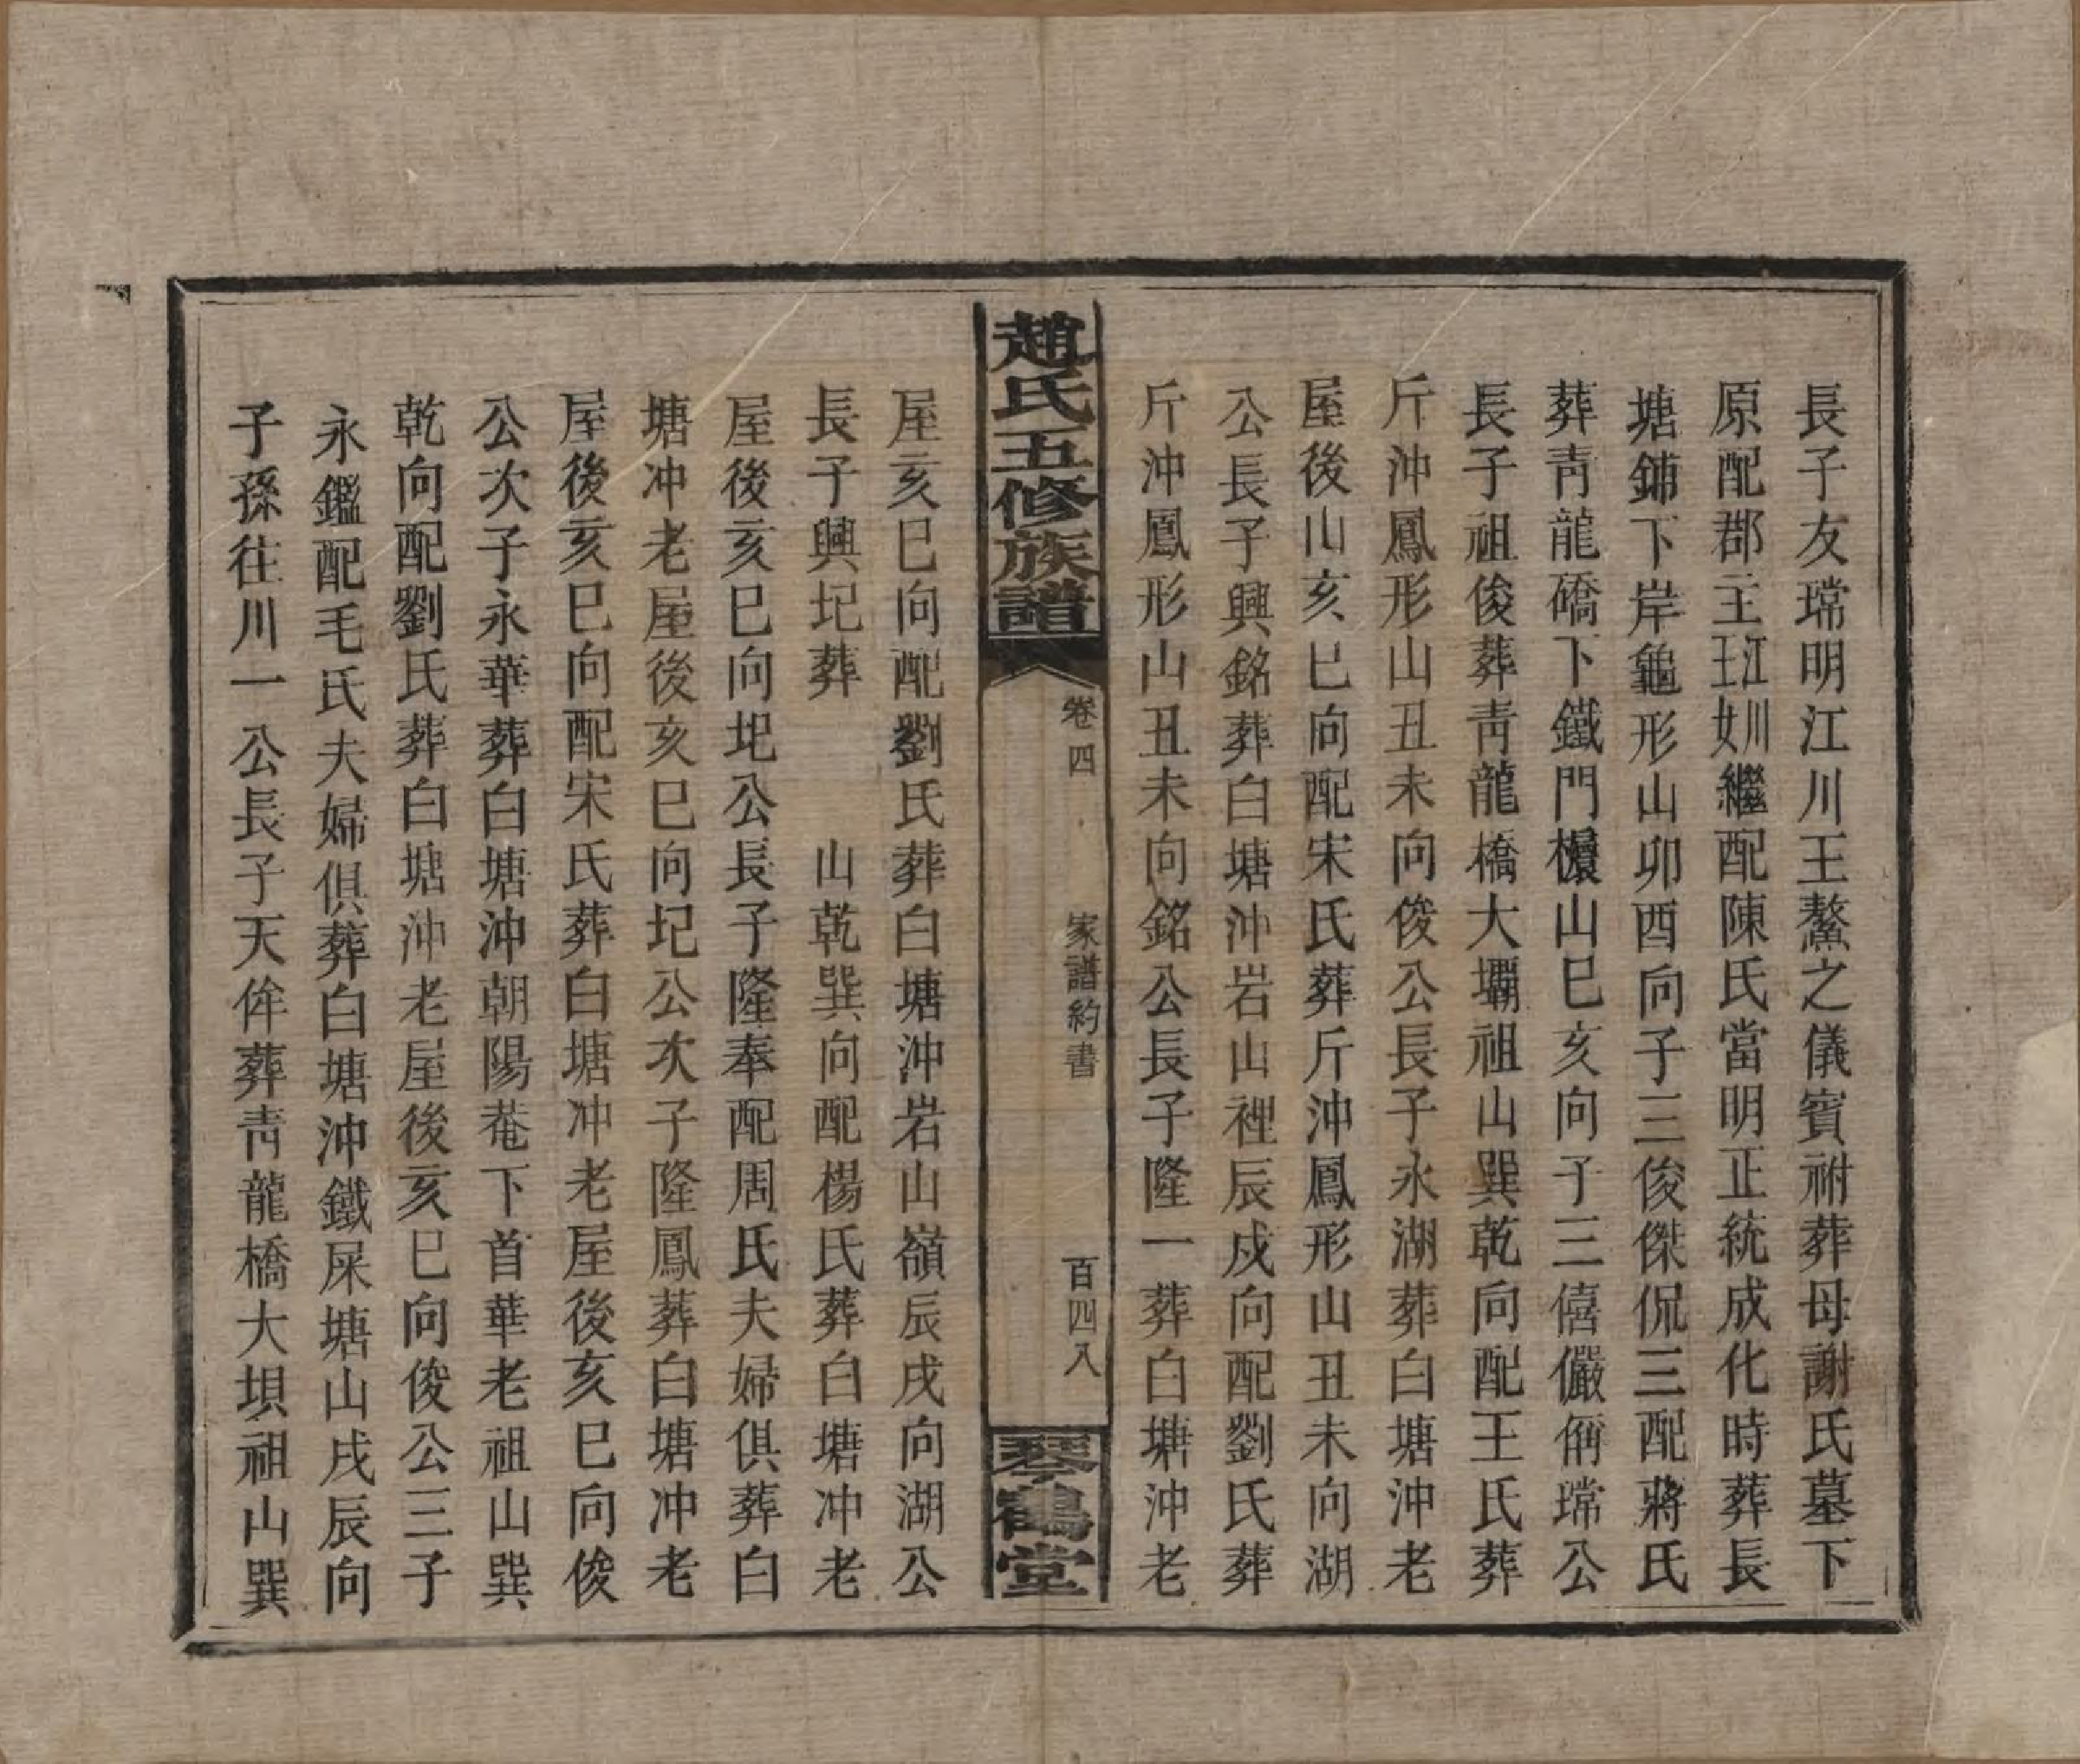 長子友瑺明江川王鰲之儀賓祔葬母謝氏墓下
原配郡主江川王女繼配陳氏當明正統成化時葬長
塘鋪下岸龜形山卯酉向子三俊傑侃三配蔣氏
葬青龍礄下鐵門檈山巳亥向子三僖儼俑瑺公
長子祖俊葬青龍橋大壩祖山巽乾向配王氏葬
斤沖鳳形山丑未向俊公長子永湖葬白塘沖老
屋後山亥巳向配宋氏葬斤沖鳳形山丑未向湖
公長子興銘葬白塘沖岩山裡辰戌向配劉氏葬
斤沖鳳形山丑未向銘公長子隆一葬白塘沖老
趙氏五修族譜
卷四
家譜約書
百四八
琴鶴堂
屋亥巳向配劉氏葬白塘沖岩山嶺辰戌向湖公
長子興圮葬 山乾巽向配楊氏葬白塘冲老
屋後亥巳向圯公長子隆奉配周氏夫婦俱葬白
塘冲老屋後亥巳向圮公次子隆鳳葬白塘冲老
屋後亥巳向配宋氏葬白塘冲老屋後亥巳向俊
公次子永華葬白塘沖朝陽菴下首華老祖山巽
乾向配劉氏葬白塘沖老屋後亥巳向俊公三子
永鑑配毛氏夫婦俱葬白塘沖鐵屎塘山戌辰向
子孫往川一公長子天侔葬青龍橋大垻祖山巽